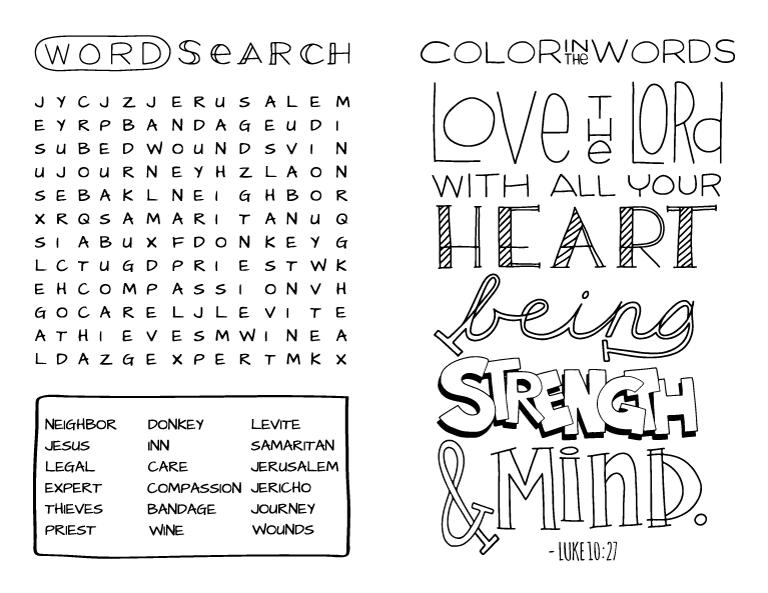 WORD SEARCH
J Y C J Z J E R U S A L E M
E Y R P B A N D A G E U D I
S U B E D W O U N D S V I N
U J O U R N E Y H Z L A O N
S E B A K L N E I G H B O R
X R Q S A M A R I T A N U Q
S I A B U X F D O N K E Y G
L C T U G D P R I E S T W K
E H C O M P A S S I O N V H
G O C A R E L J L E V I T E
A T H I E V E S M W I N E A
L D A Z G E X P E R T M K X
NEIGHBOR DONKEY LEVITE
JESUS INN SAMARITAN
LEGAL CARE JERUSALEM
EXPERT COMPASSION JERICHO
THIEVES BANDAGE JOURNEY
PRIEST WINE WOUNDS
COLOR IN THE WORDS
LOVe THe LORd
WITH ALL YOUR
HEART
being
STRENGTH
& MinD.
- LUKE 10:27